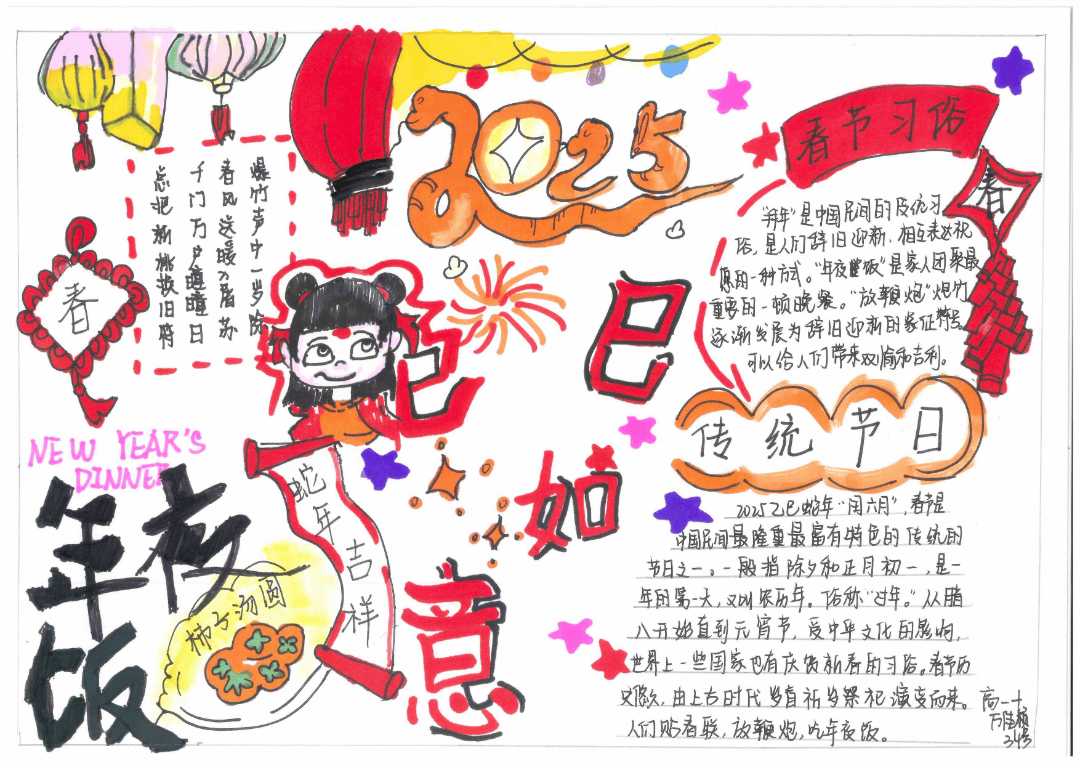 2025
爆竹声中一岁除
春风送暖入屠苏
千门万户曈曈日
总把新桃换旧符
春
春节习俗
春
"拜年"是中国民间的传统习
俗,是人们辞旧迎新、相互表达祝
愿的一种方式。"年夜饭"是家人团聚最
重要的一顿晚餐。"放鞭炮"炮竹
逐渐发展为辞旧迎新的象征符号,
可以给人们带来欢愉和吉利。
巳巳如意
传统节日
NEW YEAR'S
DINNER
年夜饭
柿子汤圆
蛇年吉祥
2025乙巳蛇年"闰六月",春节是
中国民间最隆重最富有特色的传统的
节日之一。一般指除夕和正月初一,是一
年的第一天,又叫农历年。俗称"过年。"从腊
八开始直到元宵节,受中华文化的影响,
世界上一些国家也有庆贺新春的习俗。春节历
史悠久,由上古时代岁首祈岁祭祀演变而来。
人们贴春联,放鞭炮,吃年夜饭。
高一十
34号